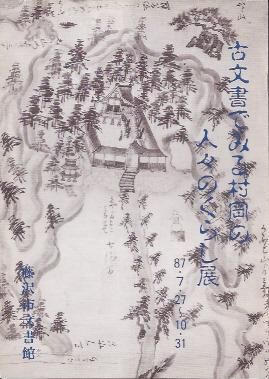 古文書でみる村岡の
人々のくらし展
87・7・27〜10・31
藤沢市文書館